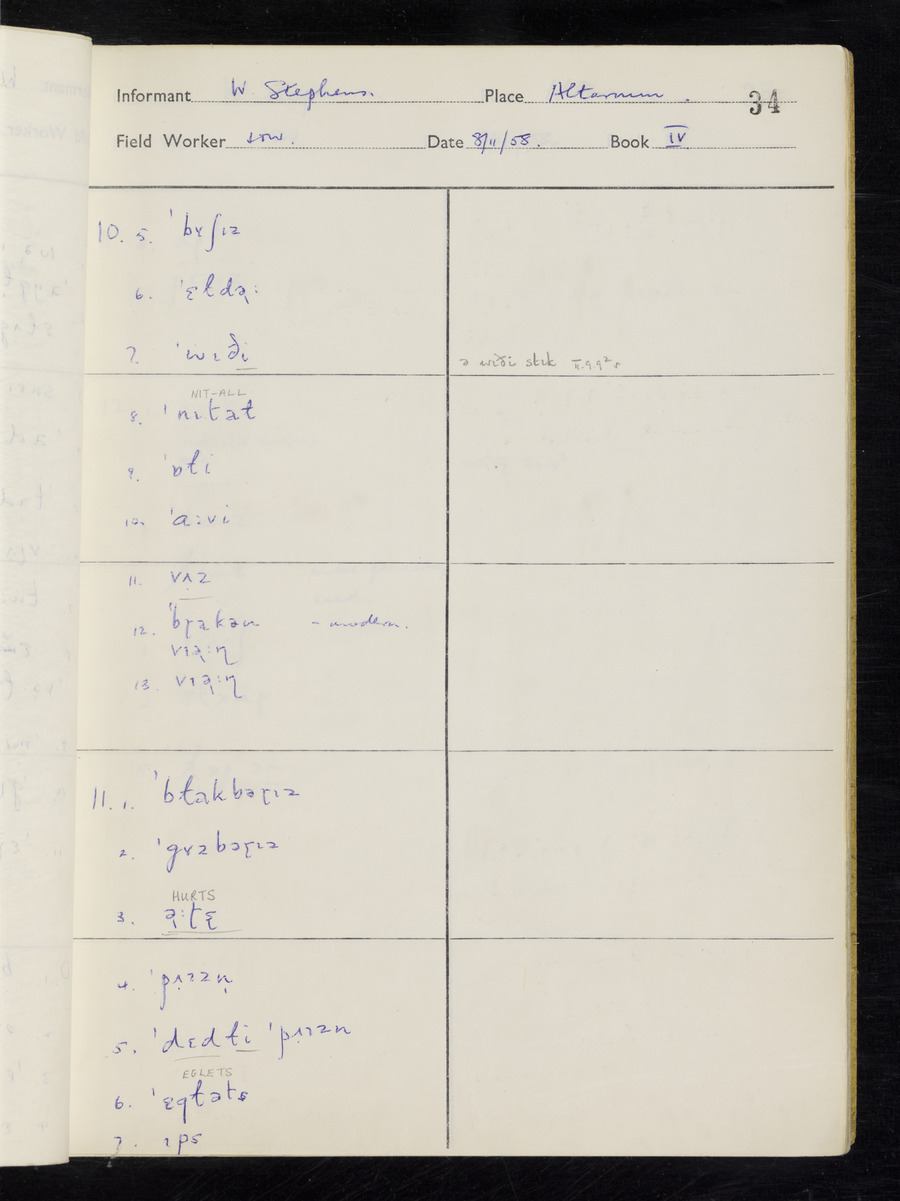 Informant W. Stephens. Place Altarnun. 34
Field Worker Date 8/11/58. Book IV
10. 5. ˈbɤʃɪz
6. ˈɛɫdə˞ː
7. ˈwɪði
ə wiði stɪk
NIT-ALL
8. ˈnɪtəɫ
9. ˈɒɫi
10. ˈaːvi
11. vʌz
12. ˈbɽakən – modern.
vɪə˞ːɳ
13. vɪə˞ːɳ
11. 1. ˈbɫakbəɽɪz
2. ˈgɤzbəɽɪz
HURTS
3.
4. ˈpʌɪzn̩
5. ˈdɛdɫi ˈpʌɪzn
EGLETS
6. ˈɛgɫəts
7. ɪps